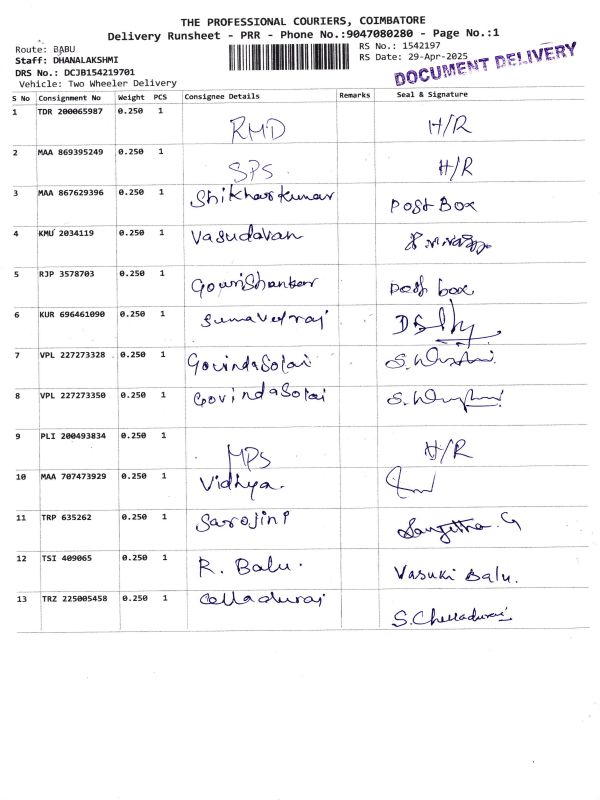 THE PROFESSIONAL COURIERS, COIMBATORE
Delivery Runsheet - PRR - Phone No.:9047080280 - Page No.:1
Route: BABU
Staff: DHANALAKSHMI
DRS No.: DCJB154219701
Vehicle: Two Wheeler Delivery
RS No.: 1542197
RS Date: 29-Apr-2025
DOCUMENT DELIVERY
S No Consignment No Weight PCS Consignee Details Remarks Seal & Signature
1 TDR 200065987 0.250 1 RMD H/R
2 MAA 869395249 0.250 1 SPS H/R
3 MAA 867629396 0.250 1 Shikharkumar Post Box
4 KMU 2034119 0.250 1 Vasudavan
5 RJP 3578703 0.250 1 GouriShankar Post box
6 KUR 696461090 0.250 1
7 VPL 227273328 0.250 1 GovindaSolai
8 VPL 227273350 0.250 1 GovindaSolai
9 PLI 200493834 0.250 1 MPS H/R
10 MAA 707473929 0.250 1 Vidhya.
11 TRP 635262 0.250 1 Sarojini Sangetha G
12 TSI 409065 0.250 1 R. Balu. Vasuki Balu.
13 TRZ 225005458 0.250 1 Celladuraj S. Chelladurai